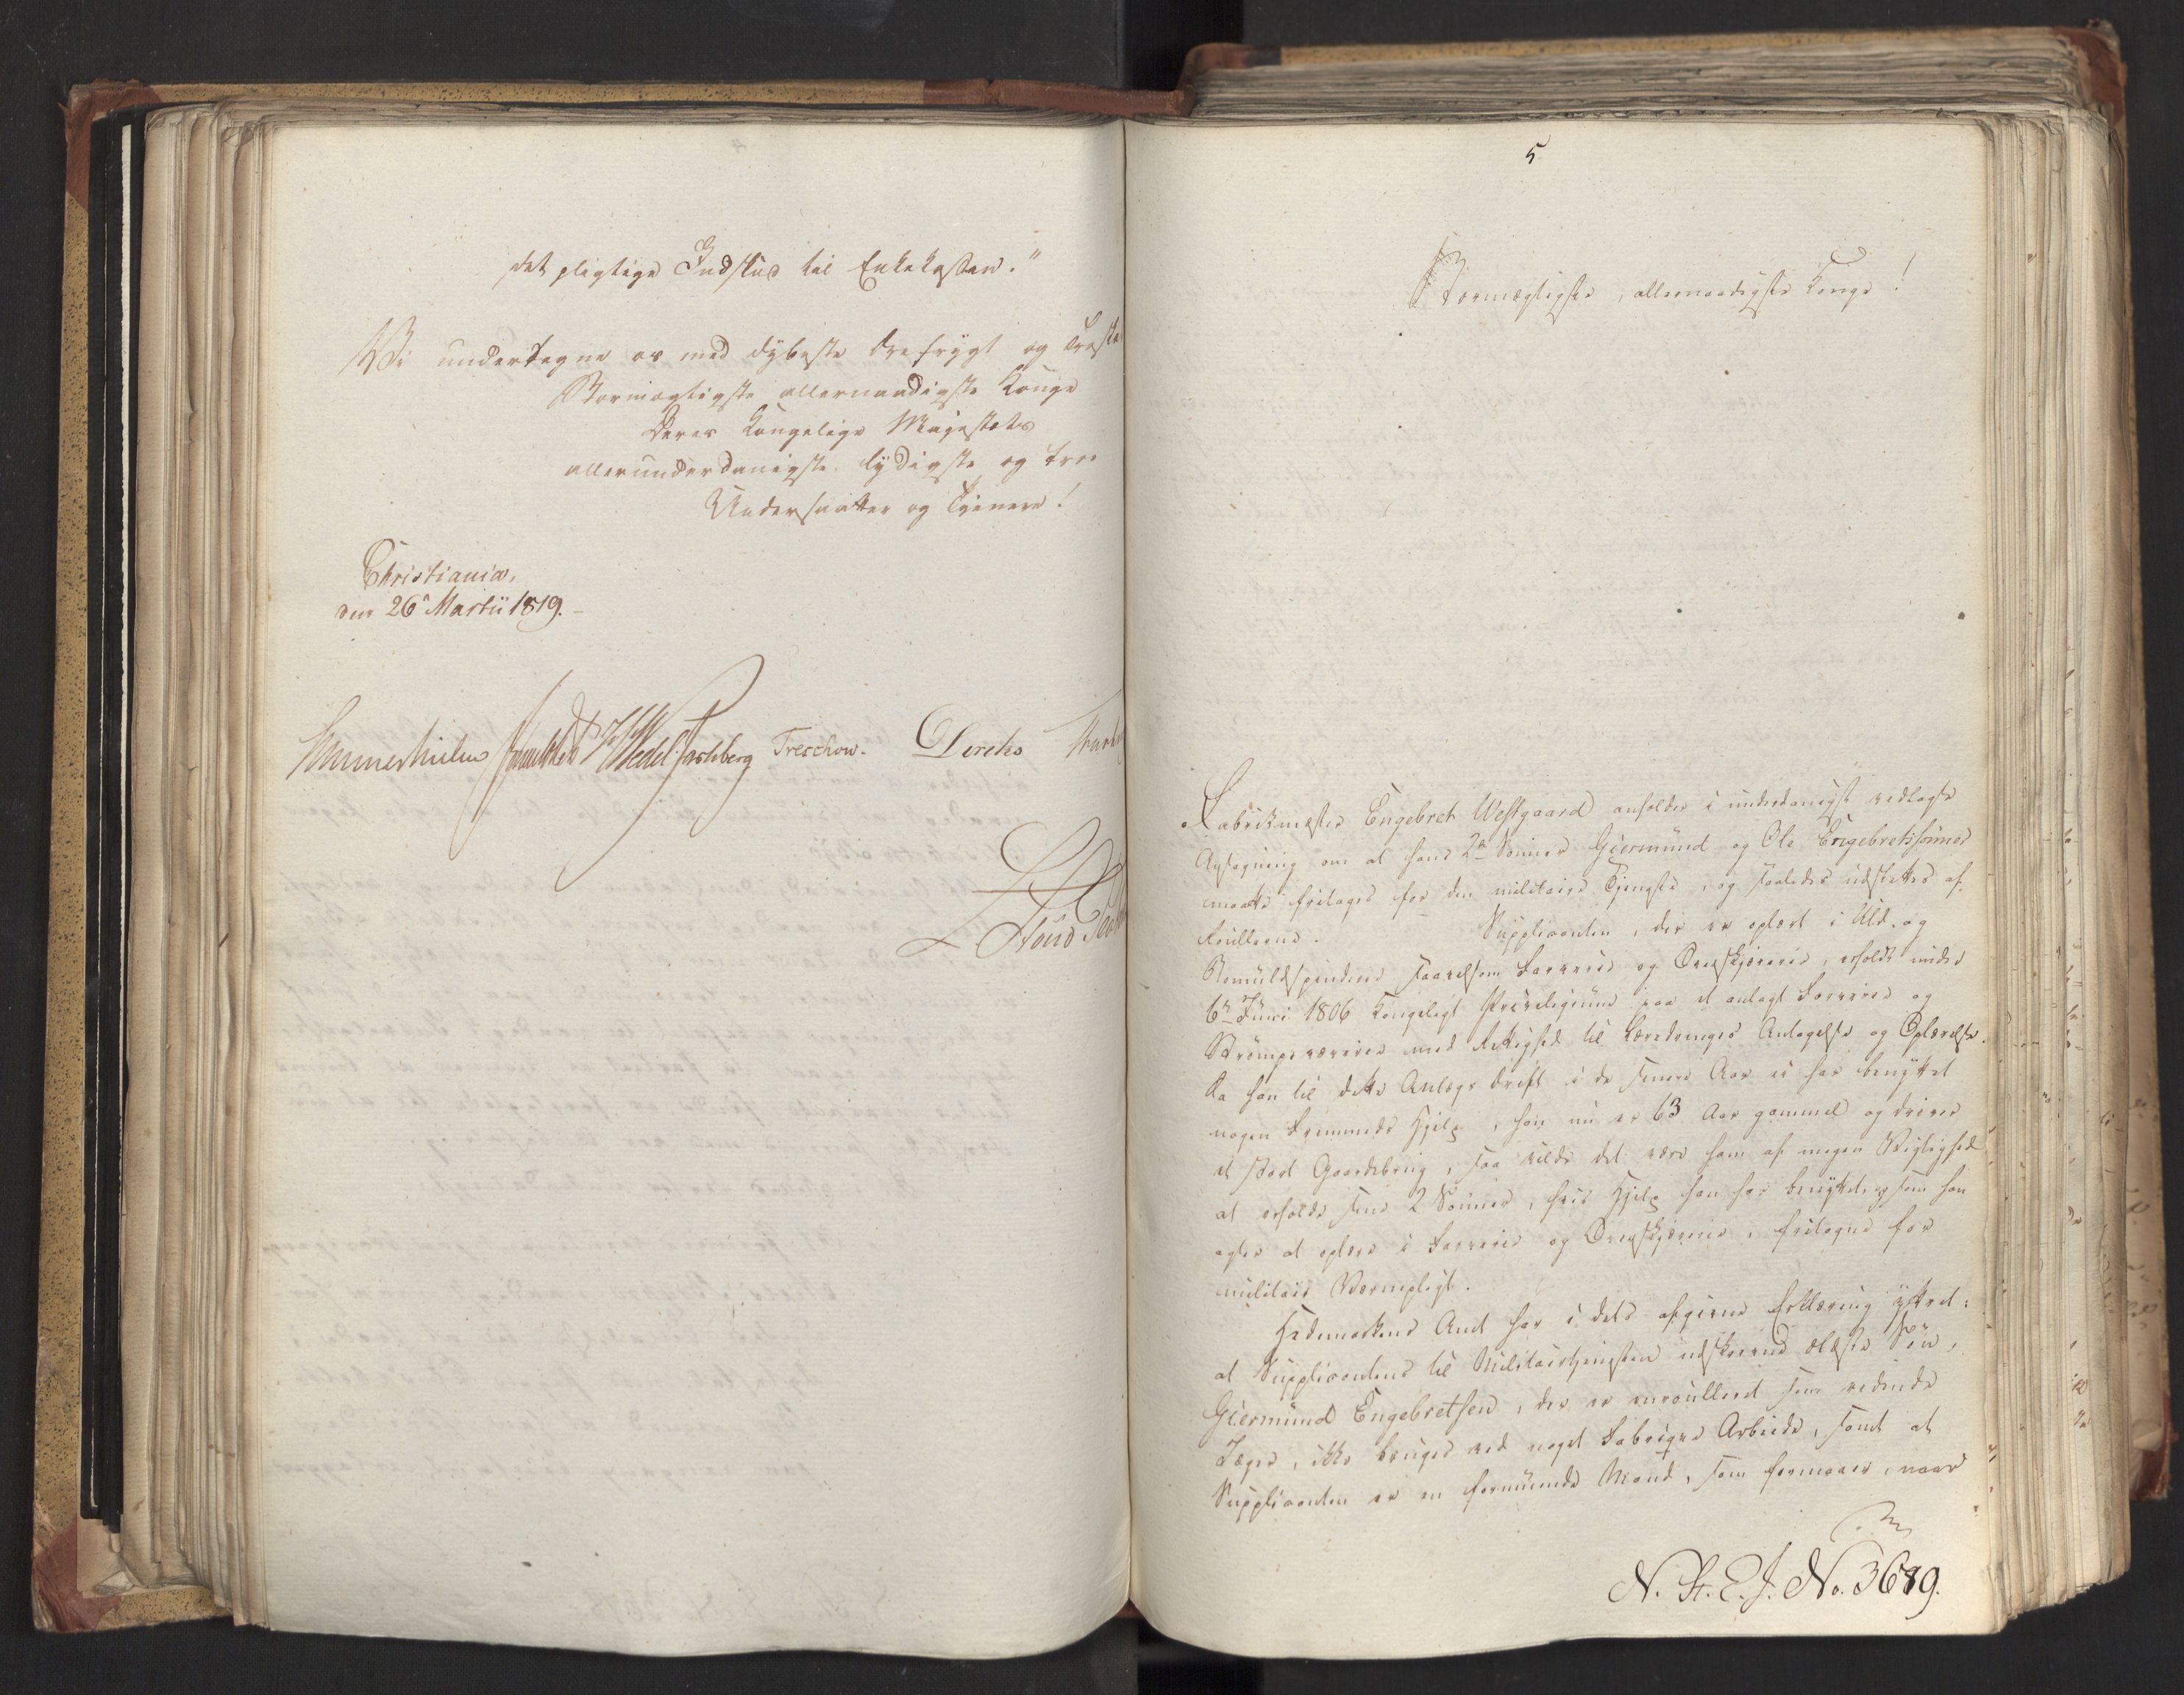 det pligtige Indskud til Enkekassen."
Vi undertegne os med dybeste Ærefrygt og Troska
Stormægtigste allernaadigste Konge
Deres Kongelige Majestæts
allerunderdanigste lydigste og troe
Undersaatter og Tjenere!
Christiania,
den 26de Martii 1819.
Sommerhielm Wedel Jarlsberg Treschow. Diriks
5
Stormægtigste, allernaadigste Konge!
Fabrikmester Engebret Westgaard anholder i underdanigst vedlagte
Ansøgning om at hans 2de Sønner Giermund og Ole Engebretssønner
maatte fritages for den militaire Tjeneste, og saaledes udslettes af
Roullerne. Supplicanten, der er oplært i Uld- og
Bomuldspinderie saavelsom Farverie og Overskjærerie, erholdt under
6te Juni 1806 Kongeligt Privilegium paa et anlagt Farverie og
Strømpevæverie med Rettighed til Læredrenges Antagelse og Oplærelse.
Da han til dette Anlægs Drift i de senere Aar ei har benyttet
nogen Fremmeds Hjelp, han nu er 63 Aar gammel og driver
et stort Gaardsbrug, saa vilde det være ham af megen Vigtighed
at erholde sine 2 Sønner, hvis Hjelp han har benyttet, og som han
agter at oplære i Farverie og Overskjærerie, fritagne for
militair Værnepligt.
Hedemarkens Amt har i dets afgivne Erklæring yttret:
at Supplicantens til Militairtjenesten udskrevne ældste Søn,
Giermund Engebretsen, der er enroulleret som ridende
Jæger, ikke bruges ved noget Fabriqve Arbeide, samt at
Supplicanten er en formuende Mand, som formaaer, naar
N. St. E. J. No. 3689.